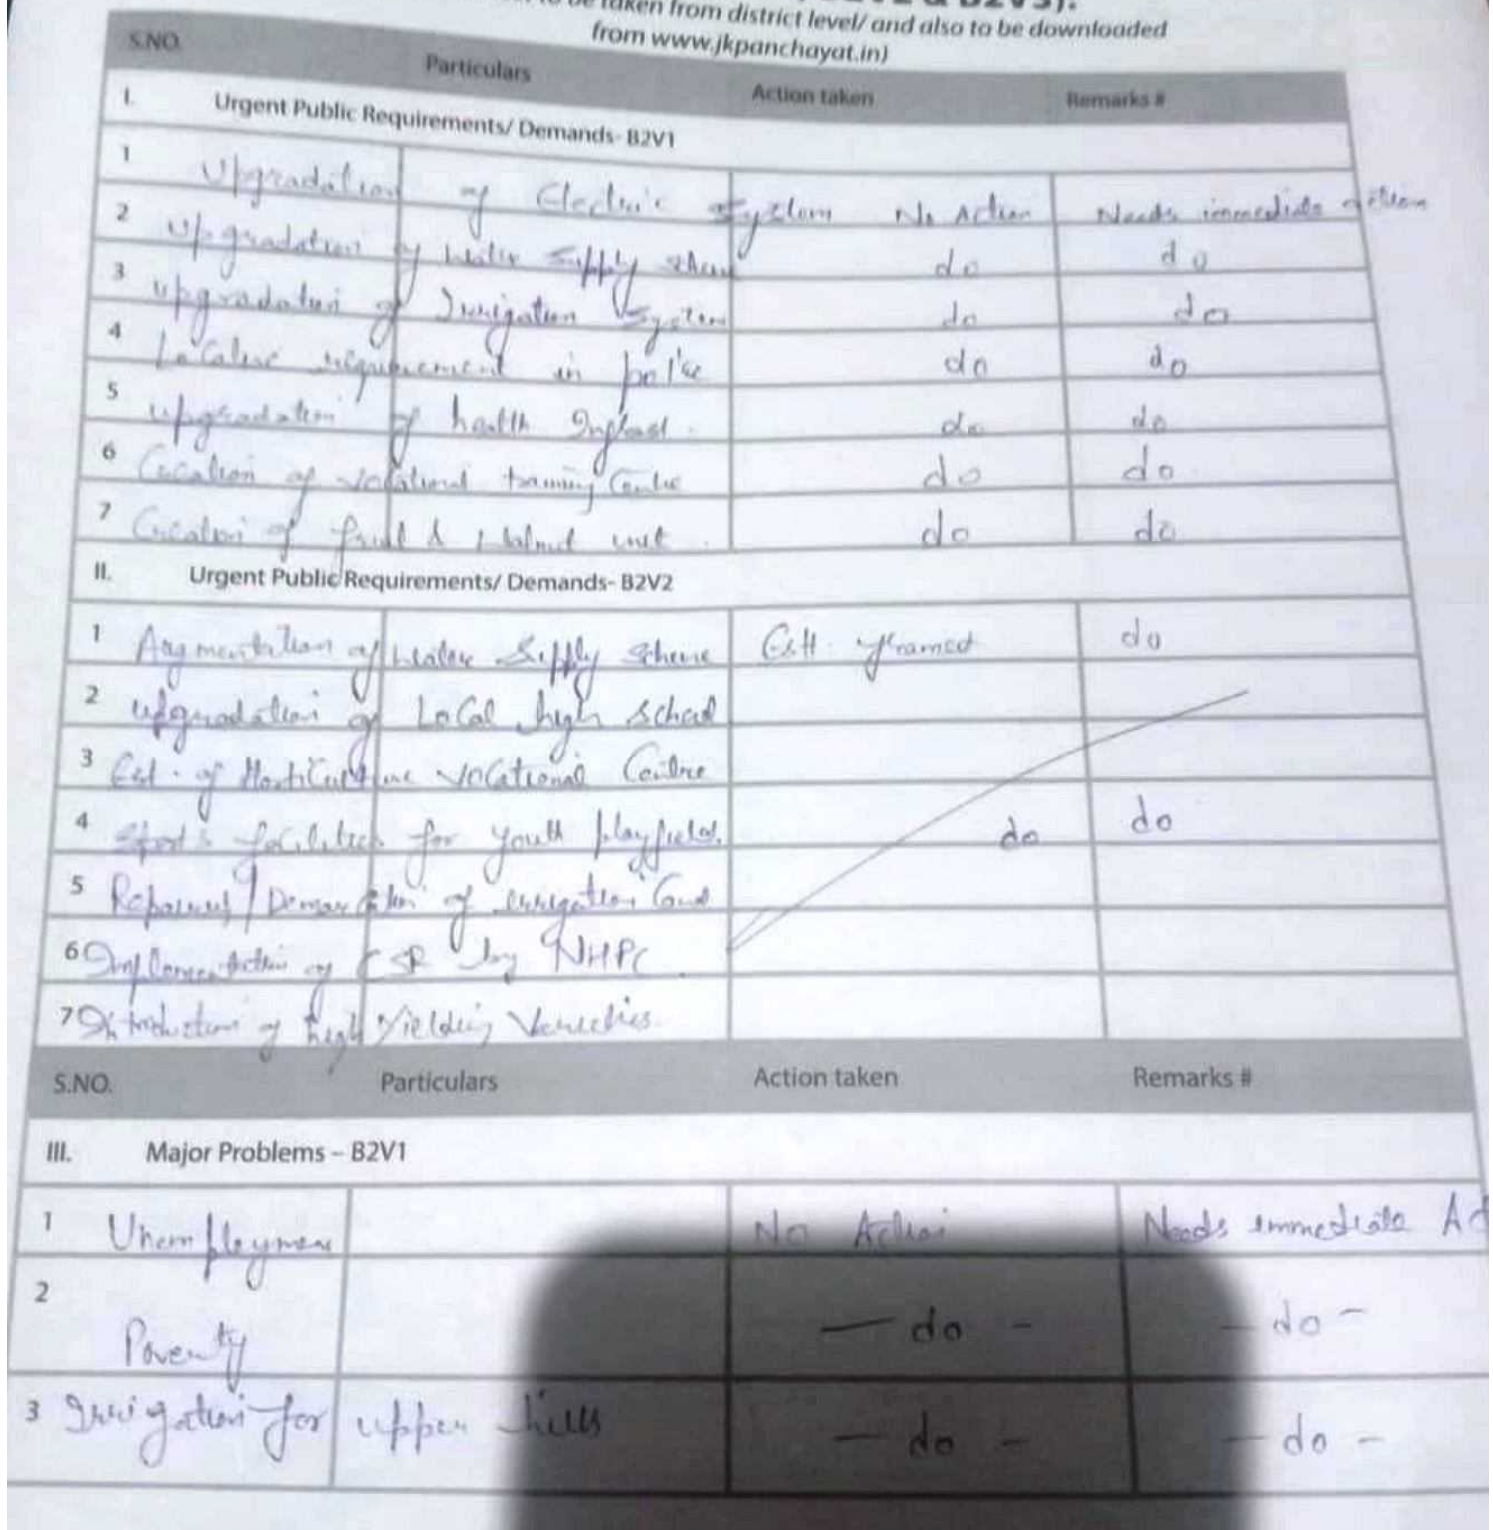 be taken from district level/ and also to be downloaded
from www.jkpanchayat.in)
S.NO. Particulars Action taken Remarks #
I. Urgent Public Requirements/ Demands- B2V1
1 Upgradation of Electric System No Action Needs immediate action
2 Upgradation of Water Supply do do
3 Upgradation of Irrigation System do do
4 requirement in do do
5 Upgradation of health do do
6 Creation of training Centre do do
7 Creation of fruit & Walnut unit do do
II. Urgent Public Requirements/ Demands- B2V2
1 Augmentation of Water Supply Scheme framed do
2 Upgradation of Local high School
3 Est. of Horticulture Vocational Centre
4 Sports facilities for youth playfield. do do
5 of irrigation
6 Implementation of CSR by NHPC
7 Introduction of high Yielding Varieties.
S.NO. Particulars Action taken Remarks #
III. Major Problems – B2V1
1 Unemployment No Action Needs immediate
2 Poverty — do - — do -
3 Irrigation for upper hills — do - — do -